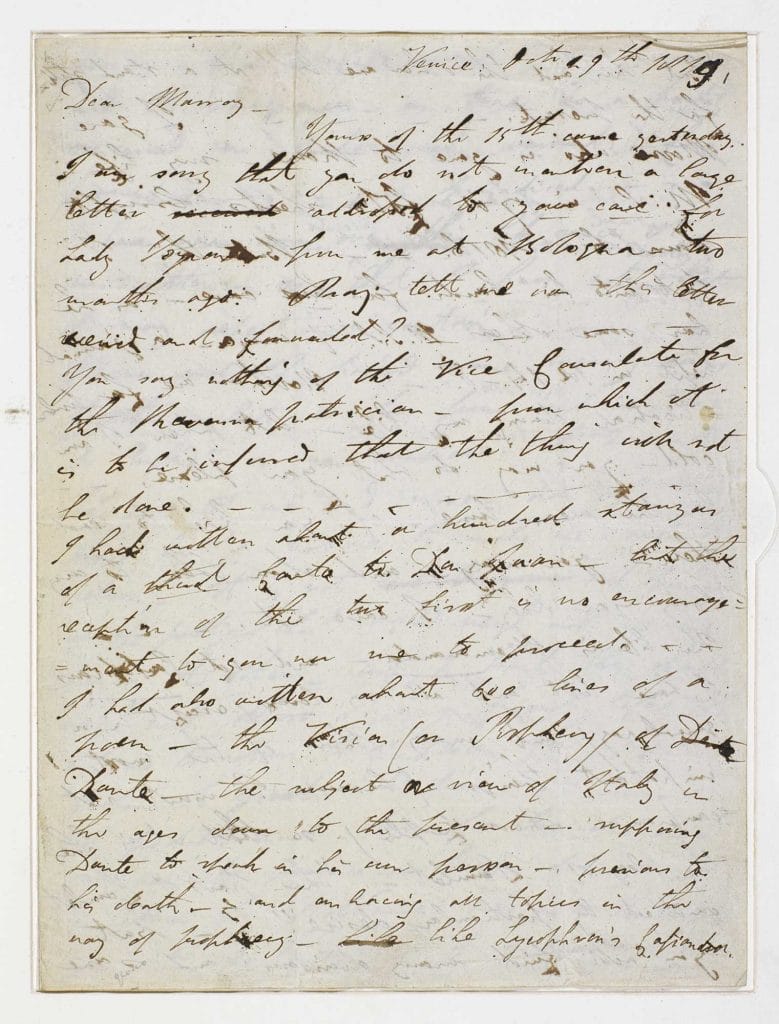 Venice. Oct. 29th 1819.
Dear Murray –
Yours of the 15th. came yesterday.
I am sorry that you do not mention a large
letter received addressed to your care for
Lady Byron from me at Bologna two
months ago. Pray tell me was this letter
received and forwarded? –
You say nothing of the Vice Consulate for
the Ravenna patrician – from which it
is to be inferred that the thing will not
be done. – – – –
I had written about a hundred stanzas
of a third Canto to Don Juan – but the
reception of the two first is no encourage=
=ment to you nor me to proceed. – –
I had also written about 600 lines of a
poem – the Vision (or Prophecy) of Dante
Dante – the subject a view of Italy in
the ages down to the present – supposing
Dante to speak in his own person – previous to
his death – – and embracing all topics in the
way of prophecy – Like like Lycophron's Cassandra.